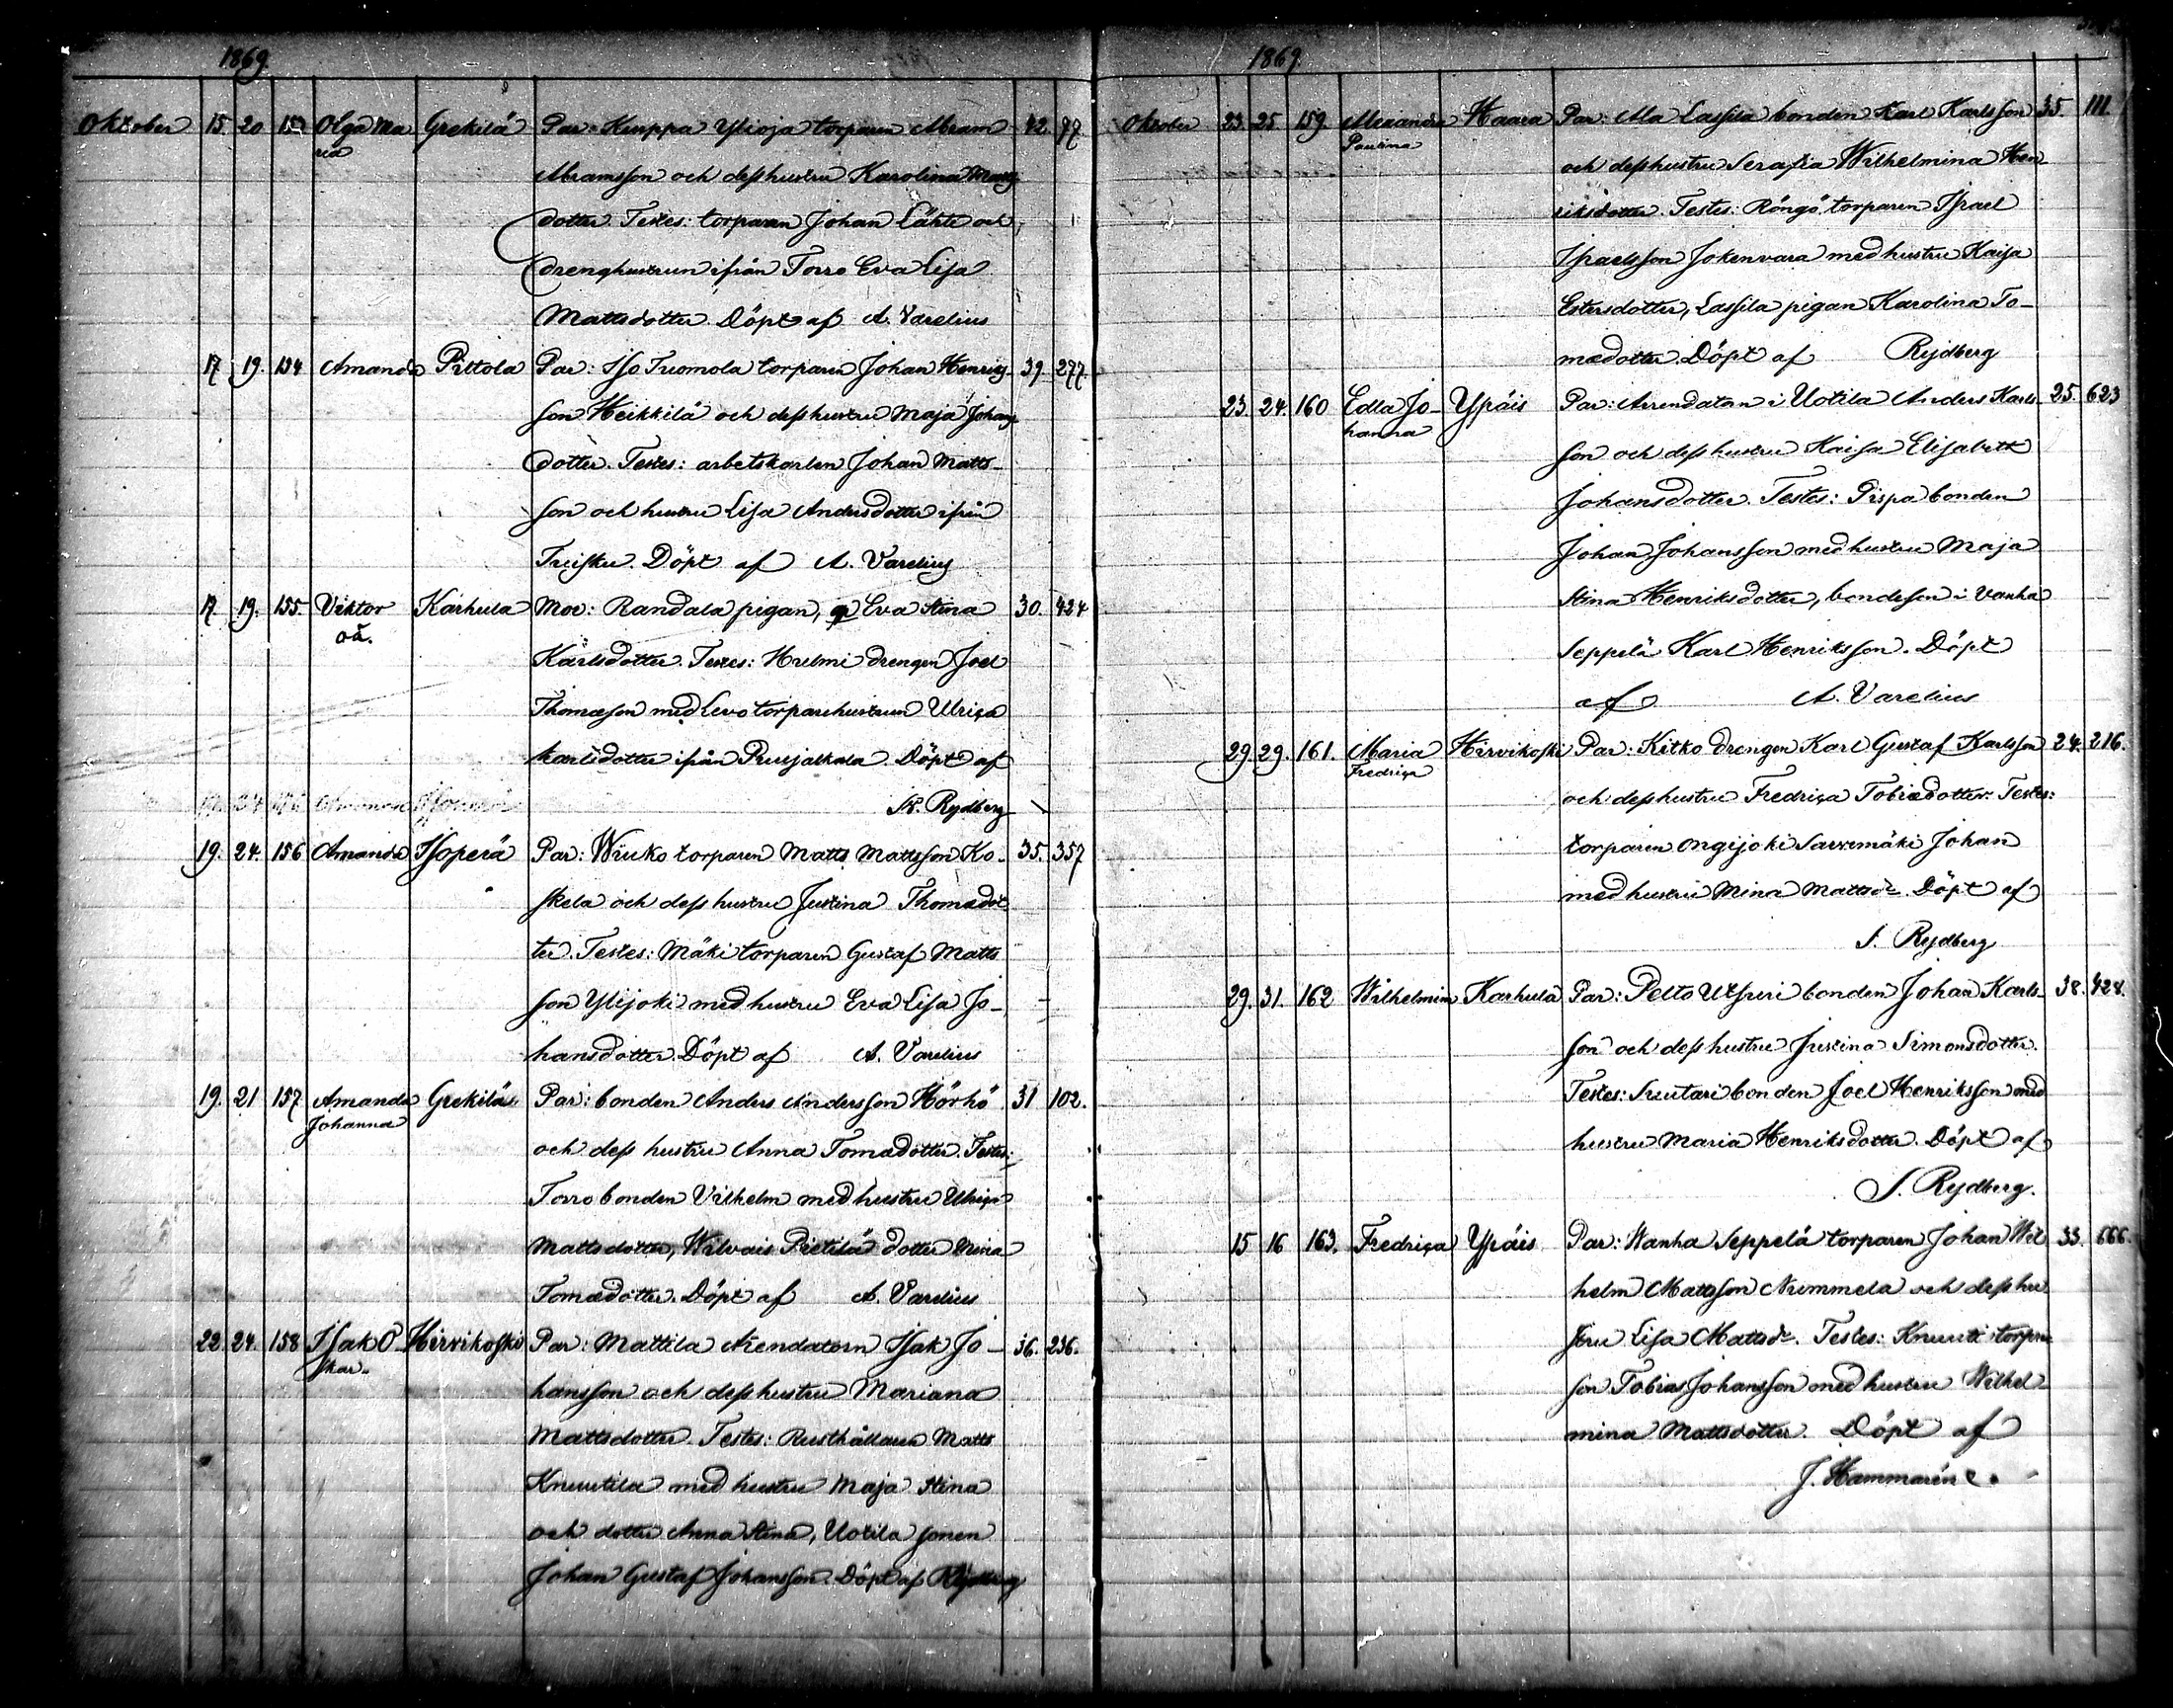 1869.
Oktober 15 20 153 Olga Ma Grekilä Par: Kurppa Ylioja torparen Abram 42. 97
ria
Abramsson och dess hustru Karolina Matts
dotter. Testes: torparen Johan Lähte och
drenghustrun ifrån Torro Eva Lisa
Mattsdotter. Döpt af A. Varelius
17 19. 154 Amanda Pittola Par: Iso Tuomola torparen Johan Henriks 39. 277
son Heikkilä och dess hustru Maja Johans
dotter. Testes: arbetskarlen Johan Matts-
son och hustru Lisa Andersdotter ifrån
Döpt af A. Varelius
17 19. 155. Viktor Karhula Moe: Randala pigan, Eva Stina 30. 424
oä.
Karlsdotter. Testes: drengen Joel
Thomasson med Levo torparehustrun Ulrica
Karlsdotter ifrån Döpt af
Rydberg
19. 24. 156 Amanda Isoperä Par: Wiuko torparen Matts Mattsson Ko- 35. 357
skela och dess hustru Justina Thomædot
ter. Testes: Mäki torparen Gustaf Matts
son Ylijoki med hustru Eva Lisa Jo-
hansdotter. Döpt af A. Varelius
19. 21 157 Amanda Grekilä Par: bonden Anders Andersson Hörhö 31 102.
Johanna
och dess hustru Anna Tomædotter. Testes:
Torro bonden Vilhelm med hustru Ulrica
Mattsdotter, Pietilä dotter Mina
Tomædotter. Döpt af A. Varelius
22. 24. 158 Isak O- Hirvikoski Par: Mattila Arendatorn Isak Jo- 36. 236.
skar
hansson och dess hustru Mariana
Mattsdotter. Testes: Rusthållaren Matts
Knuutila med hustru Maja Stina
och dotter Anna Stina, Uotila sonen
Johan Gustaf Johansson. Döpt af Rydberg
1869.
Oktober 23. 25. 159. Alexandra Haara Par: Ala Lassila bonden Karl Karlsson 35. 111.
Paulina
och dess hustru Serafia Wilhelmina Hen
riksdotter. Testes: Röngö torparen Israel
Israelsson Jokenvara med hustru Kaisa
Estersdotter, Lassila pigan Karolina To-
mædotter. Döpt af Rydberg
23. 24. 160 Edla Jo- Ypäis Par: Arrendatorn i Uotila Anders Karls- 25. 623
hanna
son och dess hustru Kaisa Elisabeth
Johansdotter. Testes: Pispa bonden
Johan Johansson med hustru Maja
Stina Henriksdotter, bondeson i Vanha
Seppelä Karl Henriksson. Döpt
af A. Varelius
29. 29. 161. Maria Hirvikoski Par: Kitko drengen Karl Gustaf Karlsson 24. 216.
Fredrica
och dess hustru Fredrica Tobiædotter. Testes:
torparen Ongijoki Johan
med hustru Mina Mattsdr. Döpt af
S. Rydberg
29. 31. 162 Wilhelmin Karhula Par: Pelto Utsuri bonden Johan Karls- 38. 428.
son och dess hustru Justina Simonsdotter.
Testes: Suutari bonden Joel Henriksson med
hustru Maria Henriksdotter. Döpt af
S. Rydberg.
15 16 163. Fredrica Ypäis Par: Wanha Seppelä torparen Johan Wil 33. 666.
helm Mattsson Nummela och dess hu
stru Lisa Mattsdr. Testes: Knuuti torpare
son Tobias Johansson med hustru Wilhel
mina Mattsdotter. Döpt af
J. Hammarén.